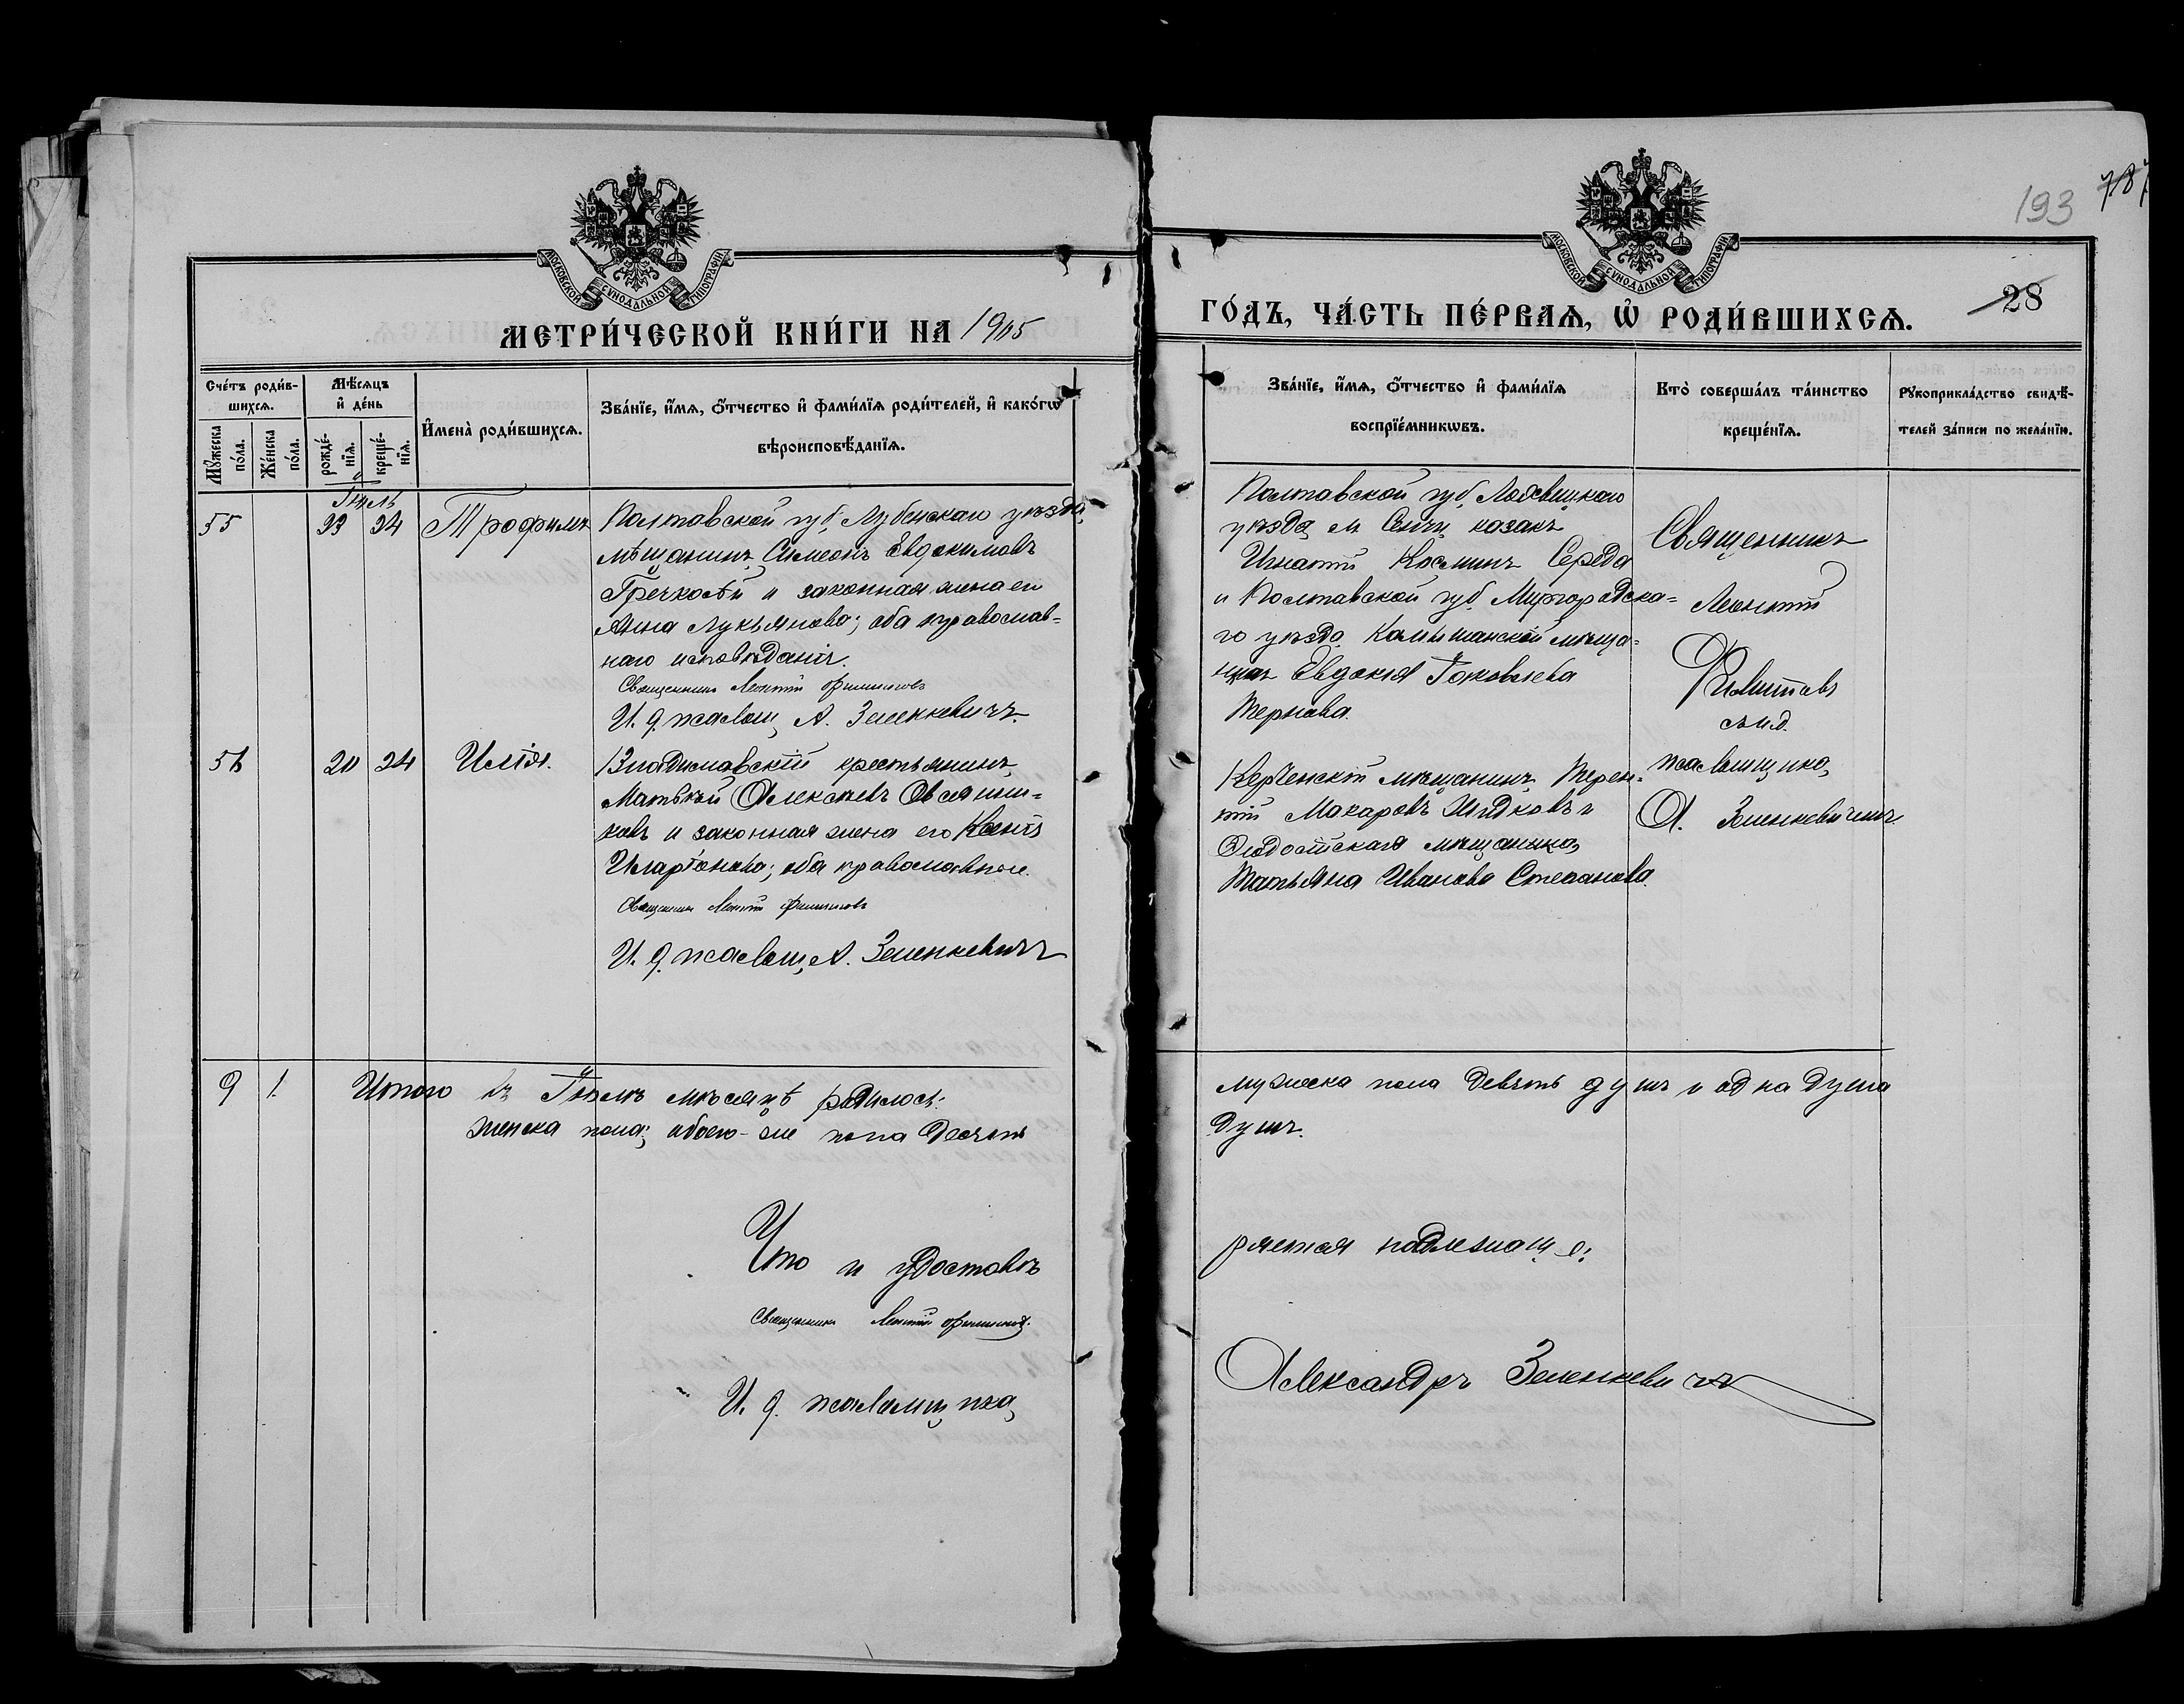 193
28
МОСКОВСКОЙ СѴНОДАЛЬНОЙ ТИПОГРАФІИ
МЕТРИ́ЧЕСКОЙ КНИ́ГИ НА 1905
МОСКОВСКОЙ СѴНОДАЛЬНОЙ ТИПОГРАФІИ
ГО́ДЪ, ЧА́СТЬ ПЕ́РВАѦ, Ѡ҆ РОДИ́ВШИХСѦ.
Сче́тъ роди́в-
шихсѧ.
Мꙋжеска по́ла.
Же́нска по́ла.
Мѣ́сѧцъ
и҆ де́нь
рожде́-нїѧ.
креще́-нїѧ.
И҆мена̀ роди́вшихсѧ.
Зва́нїе, и҆́мѧ, ѻ҆́тчество и҆ фами́лїѧ роди́телей, и҆ како́гѡ
вѣроисповѣ́данїѧ.
Зва́нїе, и҆́мѧ, ѻ҆́тчество и҆ фами́лїѧ
воспрїе́мникѡвъ.
Кто̀ соверша́лъ та́инство
креще́нїѧ.
Рꙋкоприкла́дство свидѣ́-
телей за́писи по жела́нїю.
Іюль
55 23 24 Трофимъ
Полтавской губ. Лубенскаго уѣзда,
мѣщанинъ Симеонъ Евдокимовъ
Гречкосѣй и законная жена его
Анна Лукьянова; оба православ-
наго исповѣданія.
Священникъ Леонтій Филиповъ
И. д. псаломщ. А. Зеленкевичъ.
Полтавской губ. Лохвицкаго
уѣзда м. Сенчи казакъ
Игнатій Косминъ Середа
и Полтавской губ. Миргородска-
го уѣзда Камышанской мѣща-
Евдокія Іаковлева
Тернова.
Священникъ
Леонтій
Филиповъ
съ и.д.
псаломщика
А. Зеленкевичемъ
56 20 24 Илія.
крестьянинъ
Матвѣй Алексѣевъ Овсянни-
ковъ и законная жена его Ксенія
Иларіонова; оба православные.
Священникъ Леонтій Филиповъ
И. д. псаломщ. А. Зеленкевичъ
Керченскій мѣщанинъ Терен-
тій Макаровъ и
Ѳеодосійская мѣщанка
Татьяна Иванова Степанова.
9 1. Итого въ Іюлѣ мѣсяцѣ родилось:
мужеска пола девять душъ и одна душа
женска пола; обоего-же пола десять
душъ.
Что и удостовѣ-
ряемъ подписомъ:
Священникъ Леонтій Филиповъ.
И. д. псаломщика
Александръ Зеленкевичъ